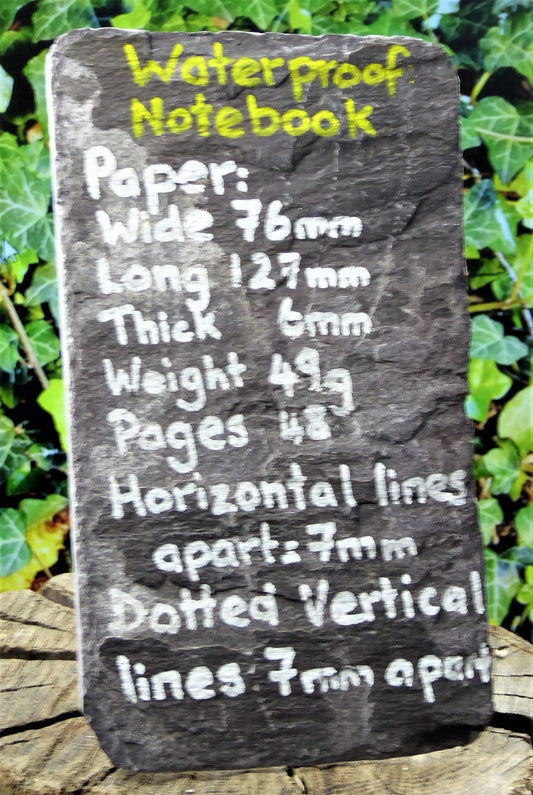 Waterproof
Notebook
Paper:
Wide 76mm
Long 127mm
Thick 6mm
Weight 49g
Pages 48
Horizontal lines
apart: 7mm
Dotted Vertical
lines 7mm apart